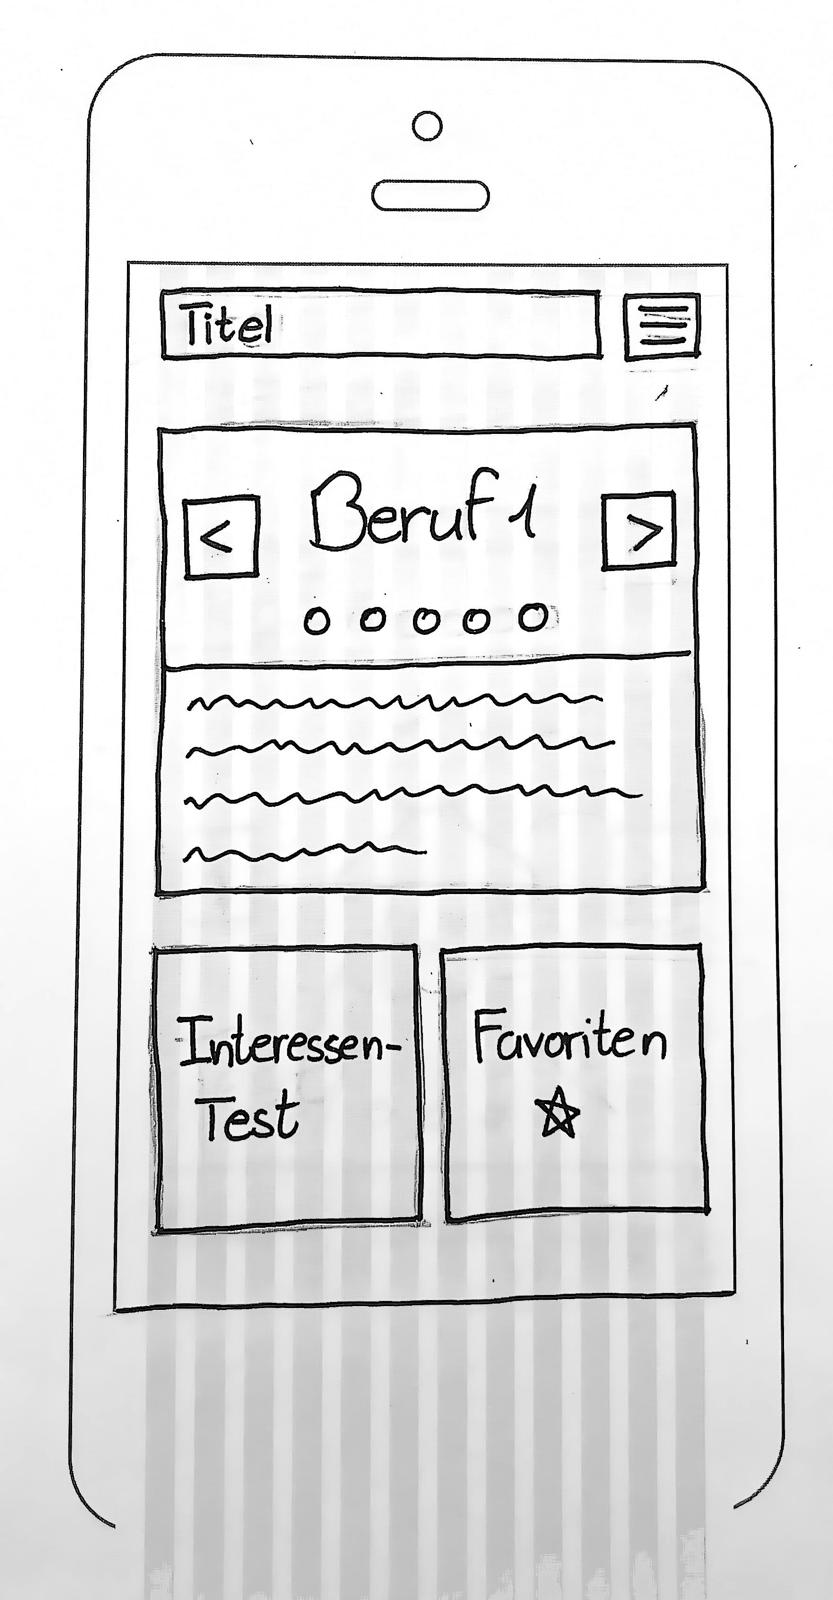 Titel
< Beruf 1 >
Interessen-
Test
Favoriten